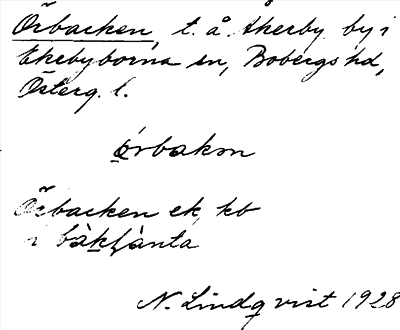 Örbacken, t. å. Åkerby by i
Ekebyborna sn, Bobergs hd,
Österg. l.
órbakən
Örbacken ek, kb
i bàkhànta
N. Lindqvist 1928